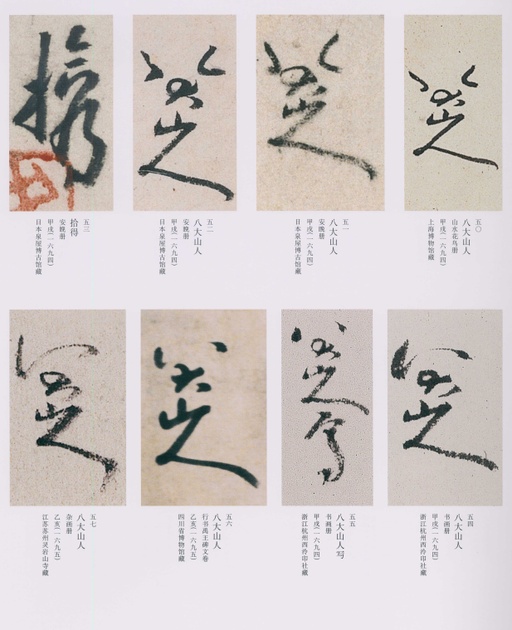 五〇
八大山人
山水花鸟册
甲戌(一六九四)
上海博物馆藏
五一
八大山人
安晚册
甲戌(一六九四)
日本泉屋博古馆藏
五二
八大山人
安晚册
甲戌(一六九四)
日本泉屋博古馆藏
五三
拾得
安晚册
甲戌(一六九四)
日本泉屋博古馆藏
五四
八大山人
书画册
甲戌(一六九四)
浙江杭州西泠印社藏
五五
八大山人写
书画册
甲戌(一六九四)
浙江杭州西泠印社藏
五六
八大山人
行书禹王碑文卷
乙亥(一六九五)
四川省博物馆藏
五七
八大山人
杂画册
乙亥(一六九五)
江苏苏州灵岩山寺藏
八大山人
八大山人
八大山人
拾得
八大山人
八大山人写
八大山人
八大山人